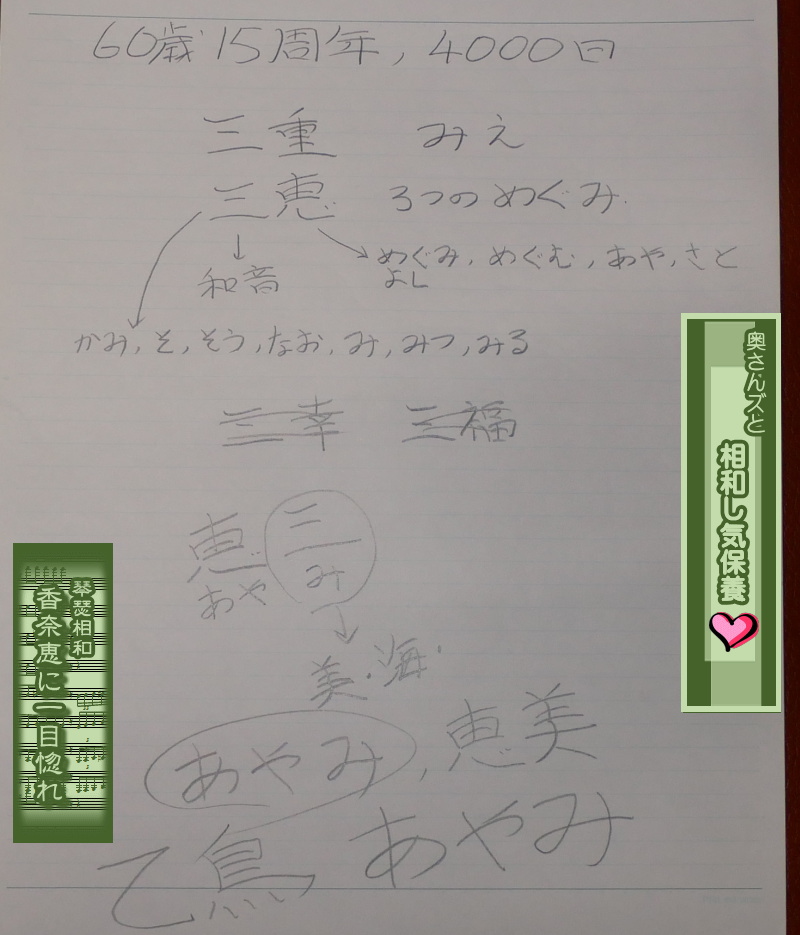 60歳15周年,4000回
三重 みえ
三恵 3つのめぐみ.
和音
めぐみ,めぐむ,あや,さと
よし
かみ,そ,そう,なお,み,みつ,みる
三幸 三福
恵三
あや み
美・海・
あやみ,恵美
乙鳥 あやみ
奥さんズと
相和し気保養
琴瑟相和
香奈恵に一目惚れ